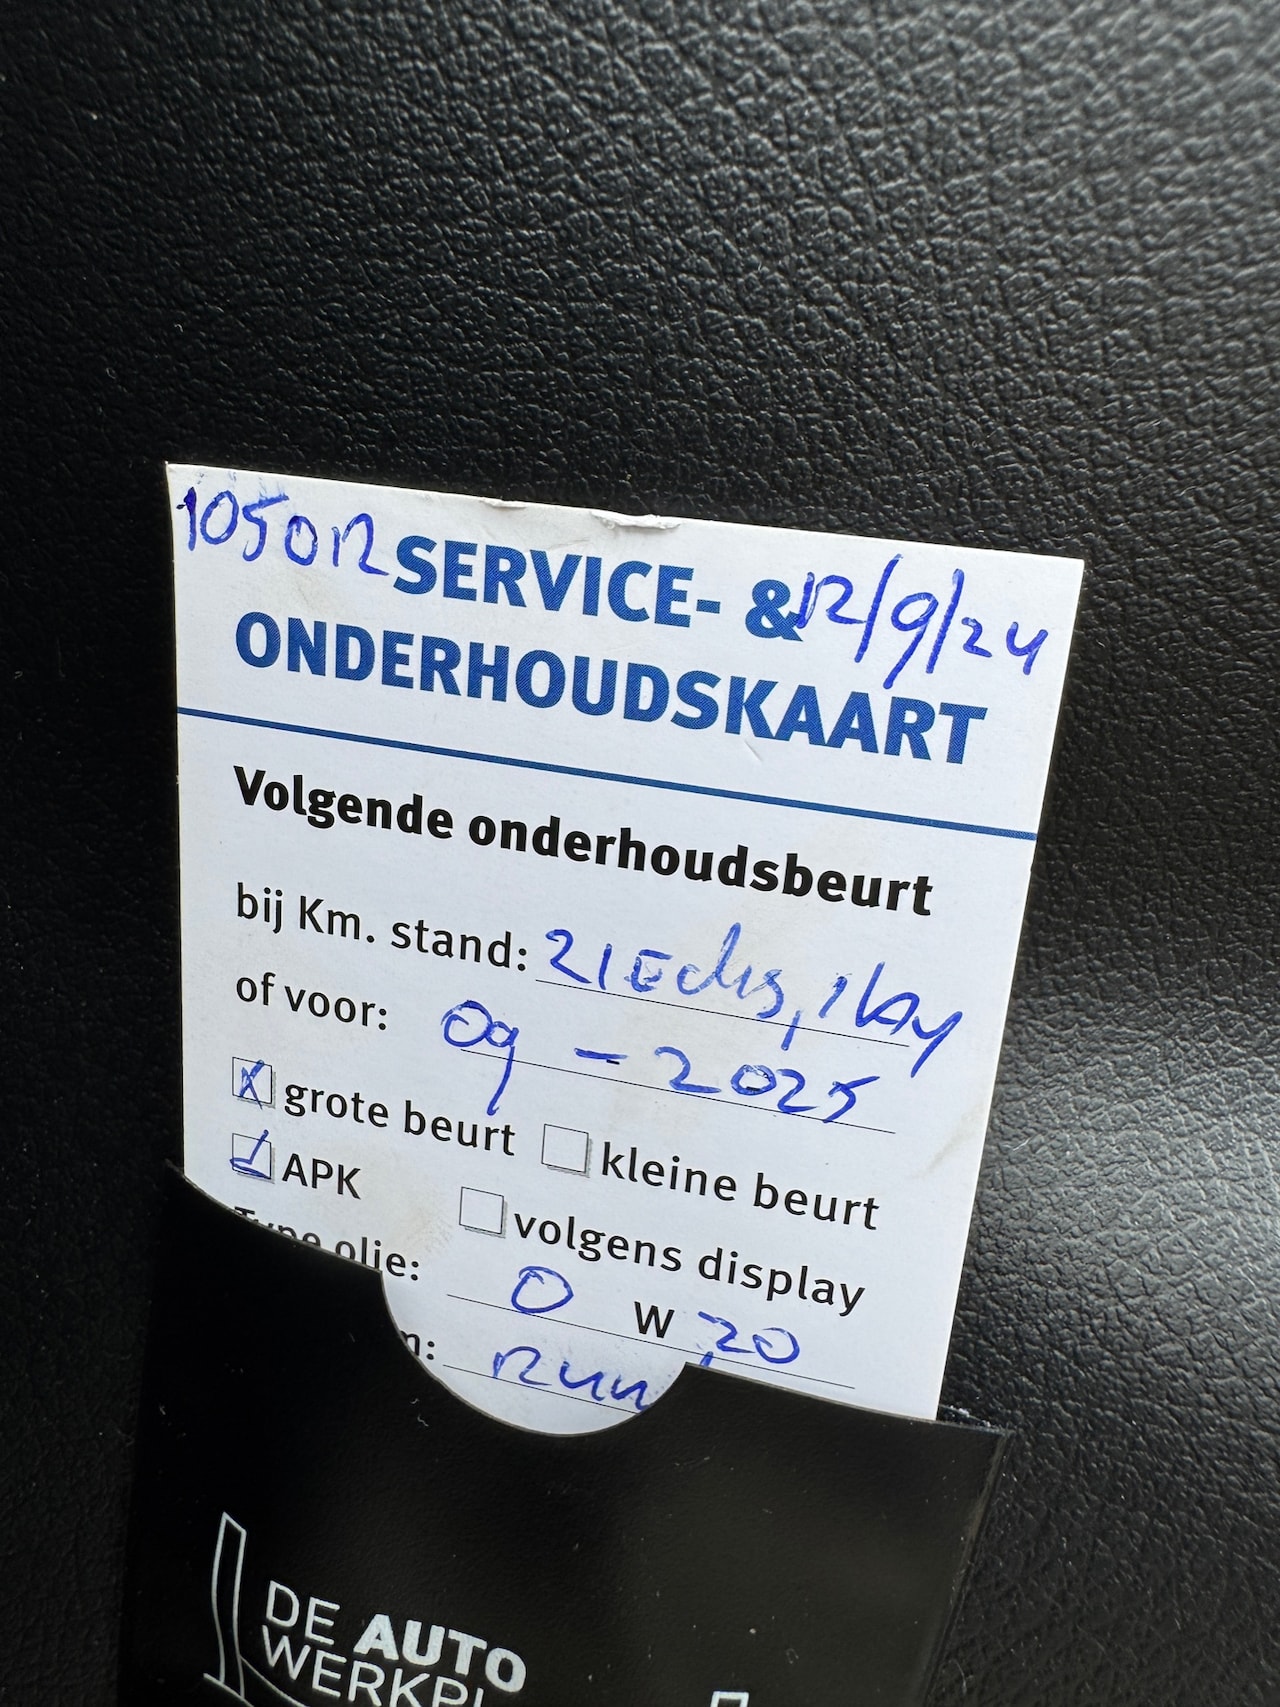 105012 SERVICE- & 12/9/24
ONDERHOUDSKAART
Volgende onderhoudsbeurt
bij Km. stand:
of voor: 09 - 2025
grote beurt kleine beurt
APK volgens display
Type olie: 0 W 20
DE AUTO
WERKPL